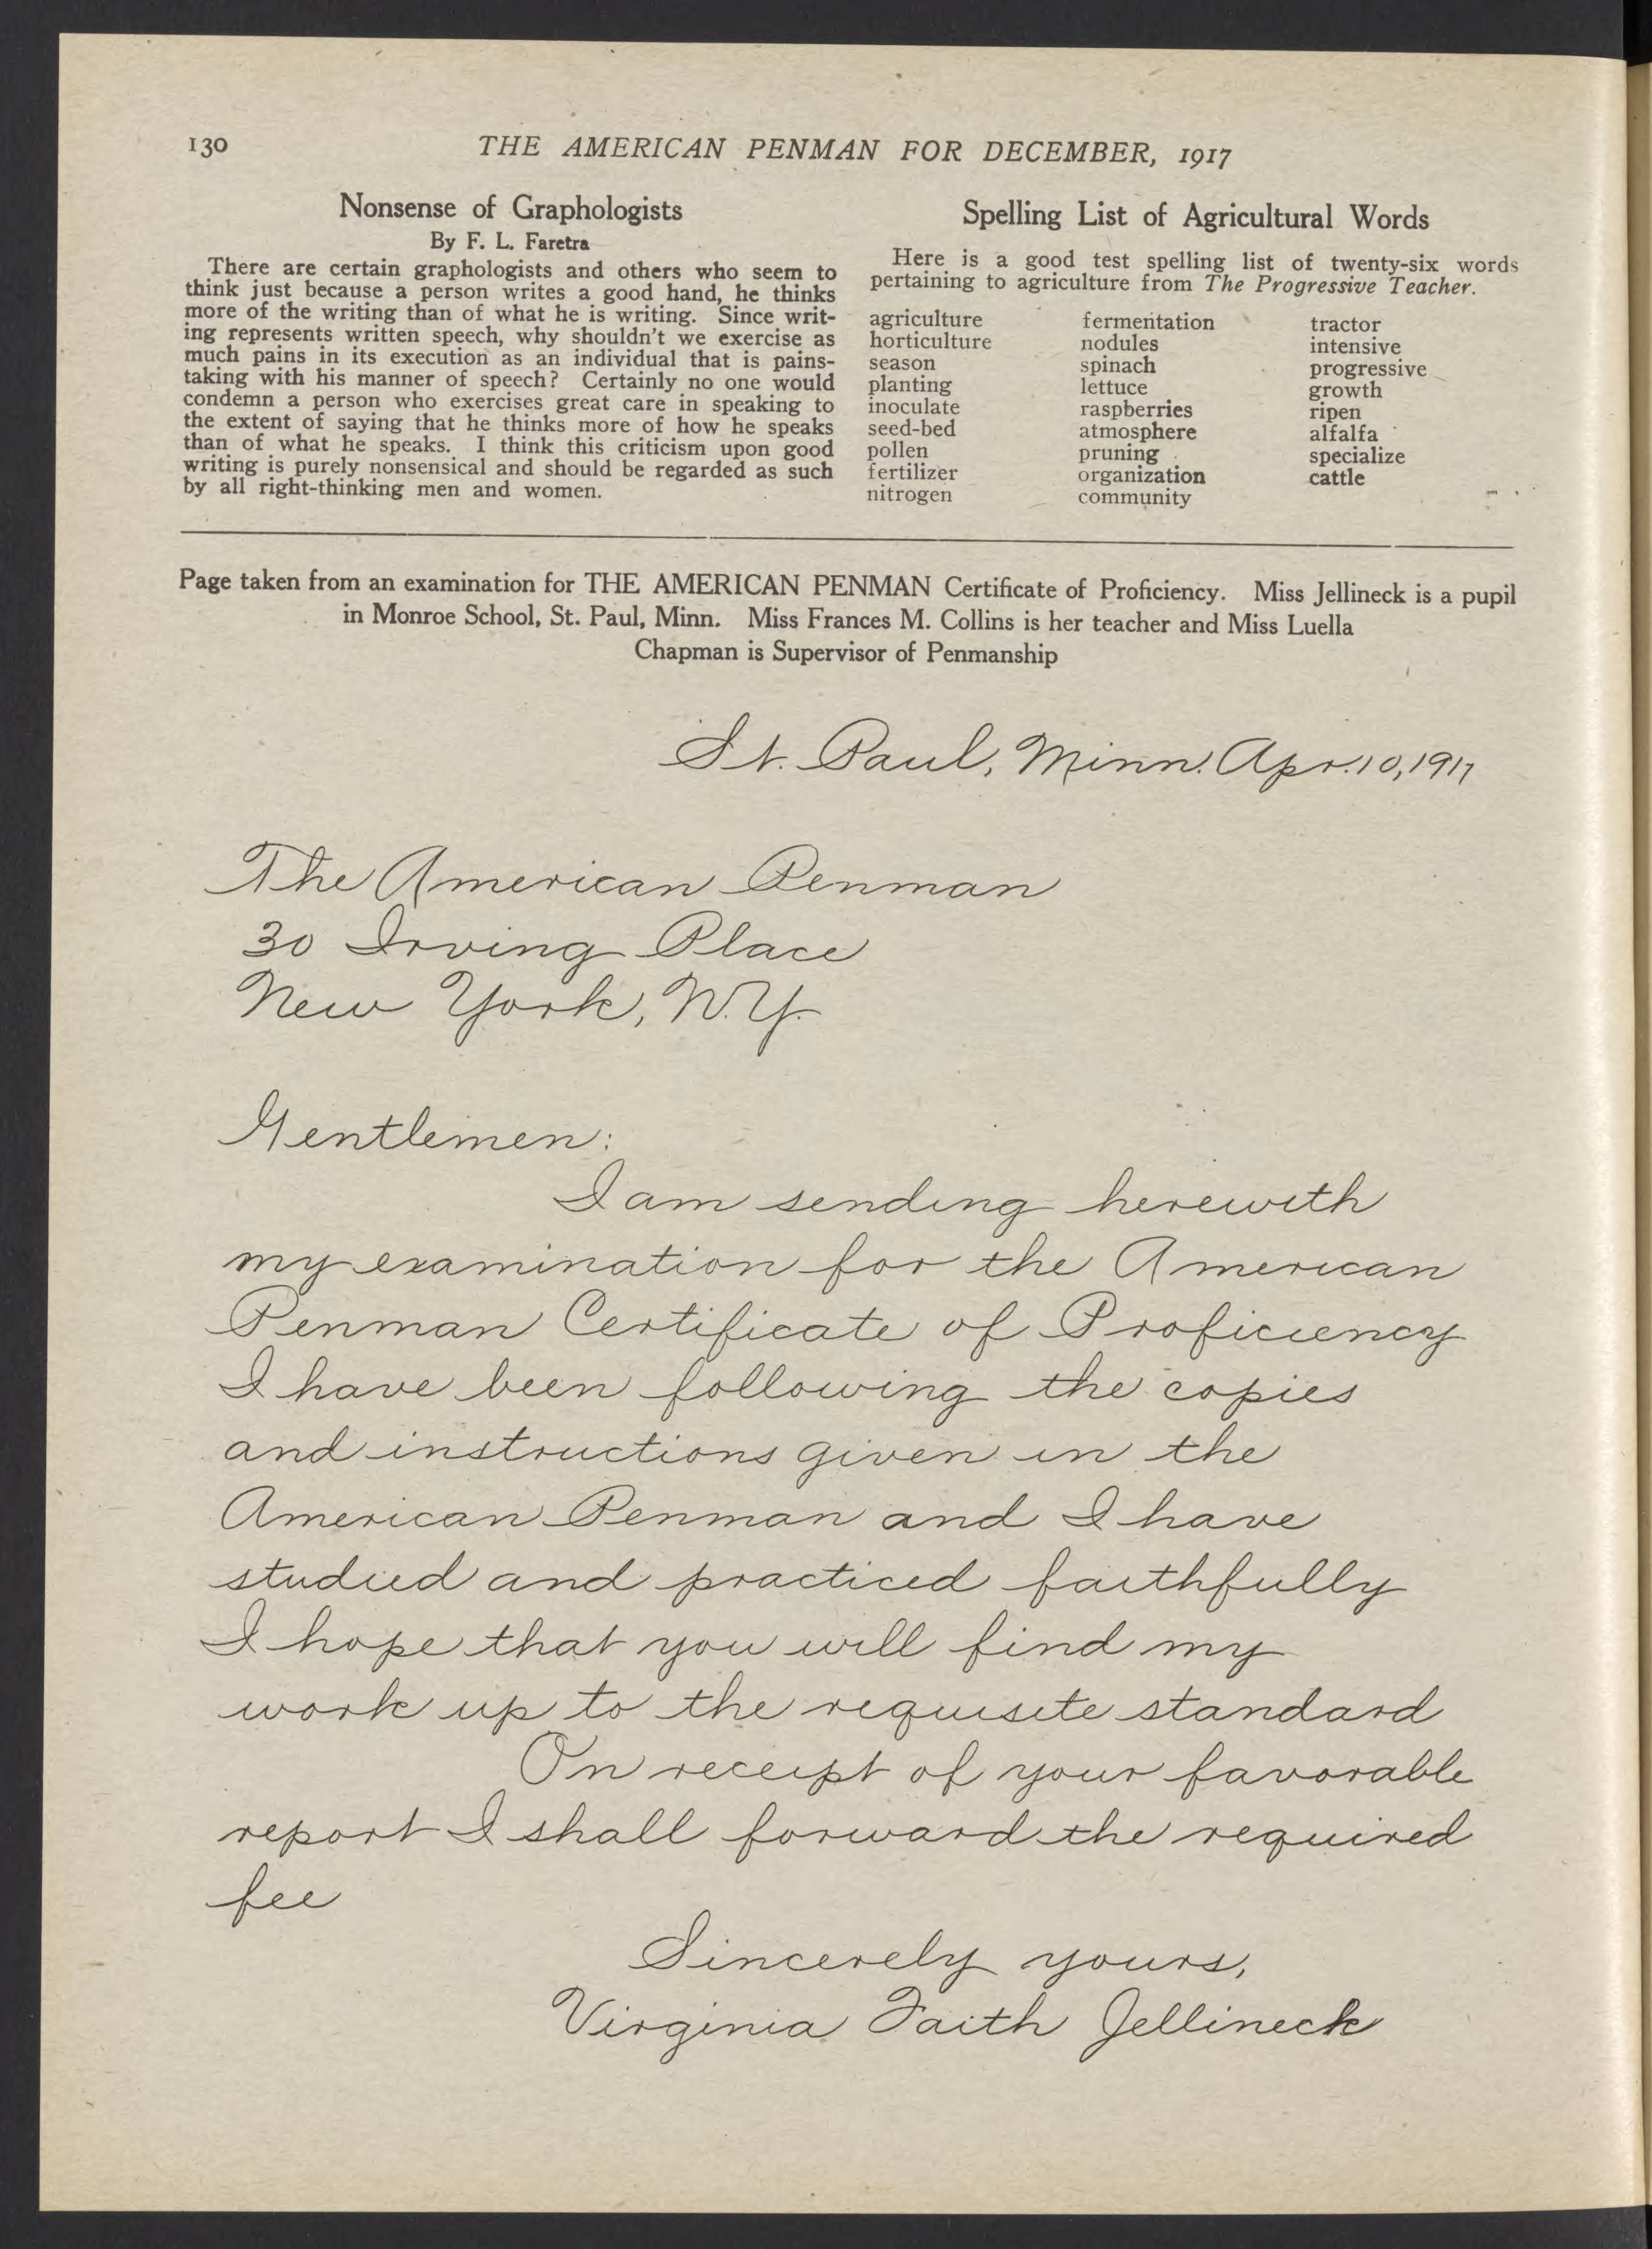 130
THE AMERICAN PENMAN FOR DECEMBER, 1917
Nonsense of Graphologists
By F. L. Faretra
There are certain graphologists and others who seem to
think just because a person writes a good hand, he thinks
more of the writing than of what he is writing. Since writ-
ing represents written speech, why shouldn't we exercise as
much pains in its execution as an individual that is pains-
taking with his manner of speech? Certainly no one would
condemn a person who exercises great care in speaking to
the extent of saying that he thinks more of how he speaks
than of what he speaks. I think this criticism upon good
writing is purely nonsensical and should be regarded as such
by all right-thinking men and women.
Spelling List of Agricultural Words
Here is a good test spelling list of twenty-six words
pertaining to agriculture from The Progressive Teacher.
agriculture
horticulture
season
planting
inoculate
seed-bed
pollen
fertilizer
nitrogen
fermentation
nodules
spinach
lettuce
raspberries
atmosphere
pruning
organization
community
tractor
intensive
progressive
growth
ripen
alfalfa
specialize
cattle
Page taken from an examination for THE AMERICAN PENMAN Certificate of Proficiency. Miss Jellineck is a pupil
in Monroe School, St. Paul, Minn. Miss Frances M. Collins is her teacher and Miss Luella
Chapman is Supervisor of Penmanship
St. Paul, Minn. Apr. 10, 1917
The American Penman
30 Irving Place
New York, N.Y.
Gentlemen:
I am sending herewith
my examination for the American
Penman Certificate of Proficiency
I have been following the copies
and instructions given in the
American Penman and I have
studied and practiced faithfully
I hope that you will find my
work up to the requisite standard
On receipt of your favorable
report I shall forward the required
fee
Sincerely yours,
Virginia Faith Jellineck